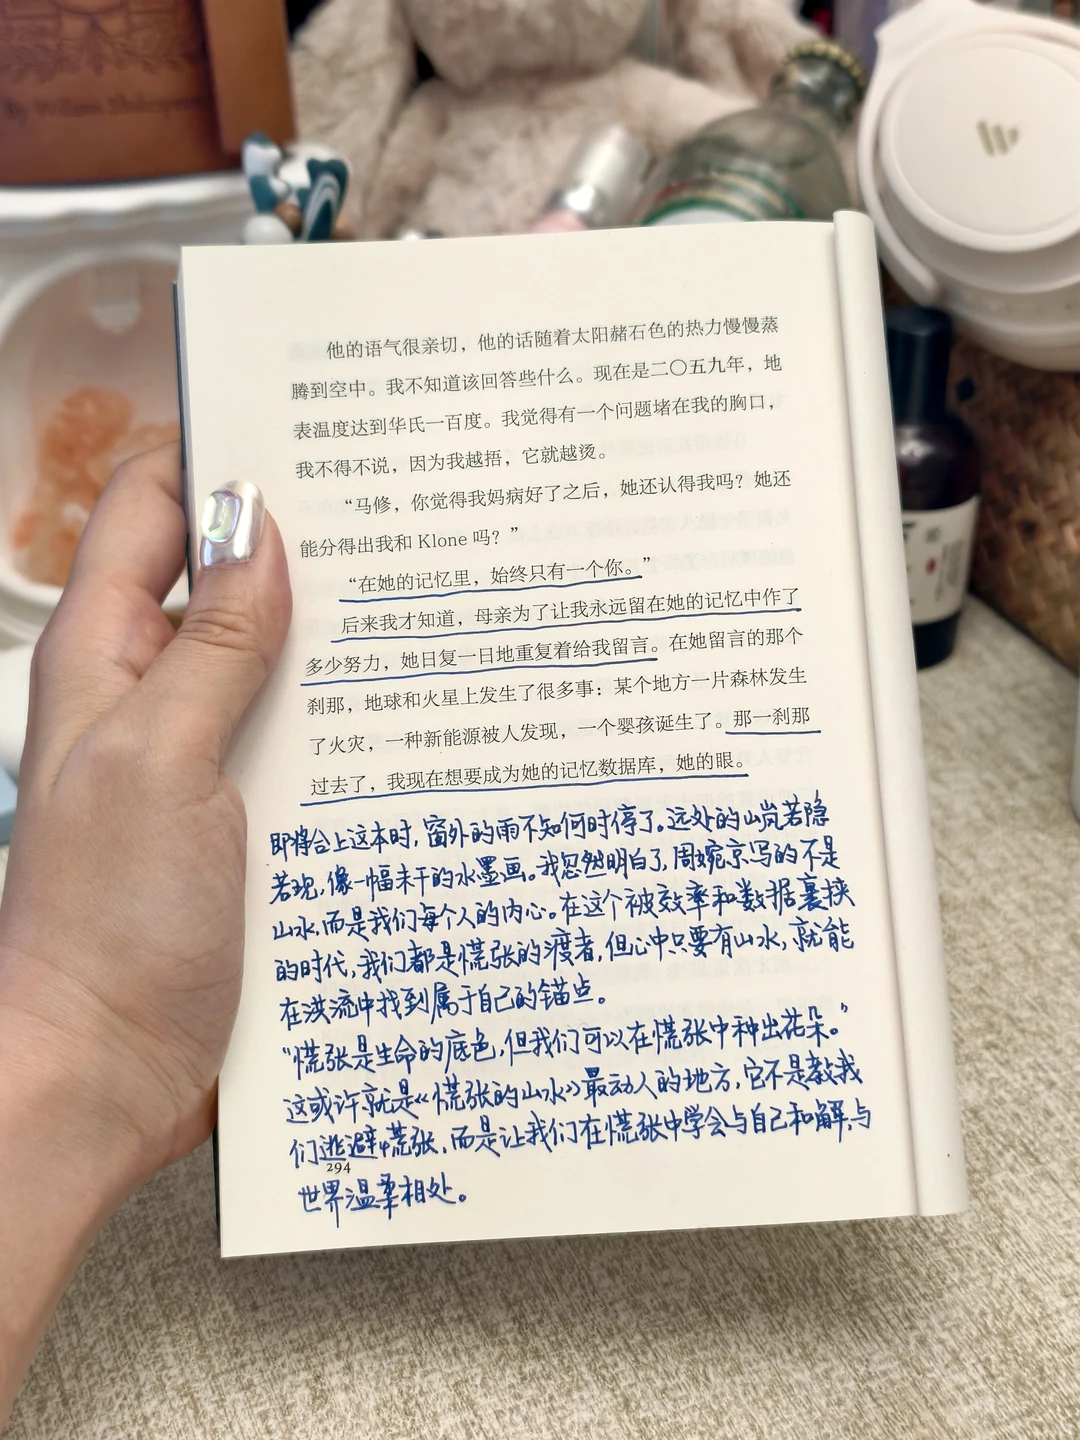 By William Shakespeare
他的语气很亲切，他的话随着太阳赭石色的热力慢慢蒸
腾到空中。我不知道该回答些什么。现在是二〇五九年，地
表温度达到华氏一百度。我觉得有一个问题堵在我的胸口，
我不得不说，因为我越捂，它就越烫。
“马修，你觉得我妈病好了之后，她还认得我吗？她还
能分得出我和 Klone 吗？”
“在她的记忆里，始终只有一个你。”
后来我才知道，母亲为了让我永远留在她的记忆中作了
多少努力，她日复一日地重复着给我留言。在她留言的那个
刹那，地球和火星上发生了很多事：某个地方一片森林发生
了火灾，一种新能源被人发现，一个婴孩诞生了。那一刹那
过去了，我现在想要成为她的记忆数据库，她的眼。
即将合上这本时，窗外的雨不知何时停了。远处的山岚若隐
若现，像一幅未干的水墨画。我忽然明白了，周婉京写的不是
山水，而是我们每个人的内心。在这个被效率和数据裹挟
的时代，我们都是慌张的渡者，但心中只要有山水，就能
在洪流中找到属于自己的锚点。
“慌张是生命的底色，但我们可以在慌张中种出花朵。”
这或许就是《慌张的山水》最动人的地方，它不是教我
们逃避慌张，而是让我们在慌张中学会与自己和解，与
294
世界温柔相处。